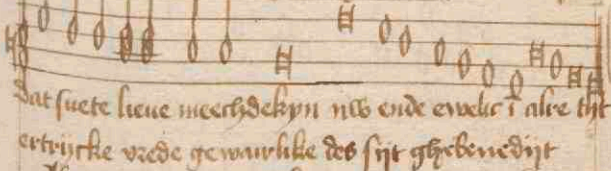 dat suete lieue meechdekyn nw ende ewelic ī alre tijt
ertrijcke vrede gewairlike des sijt ghebenedijt